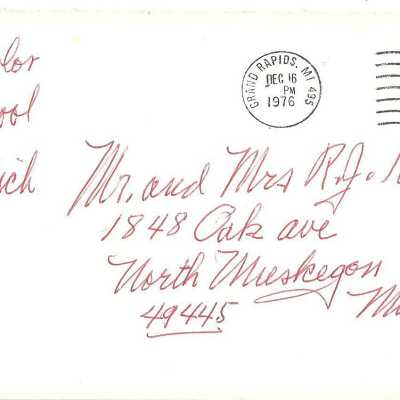 GRAND RAPIDS, MI 495
DEC 16
PM
1976
Mr. and Mrs R.J.
1848 Oak ave
North Muskegon
49445